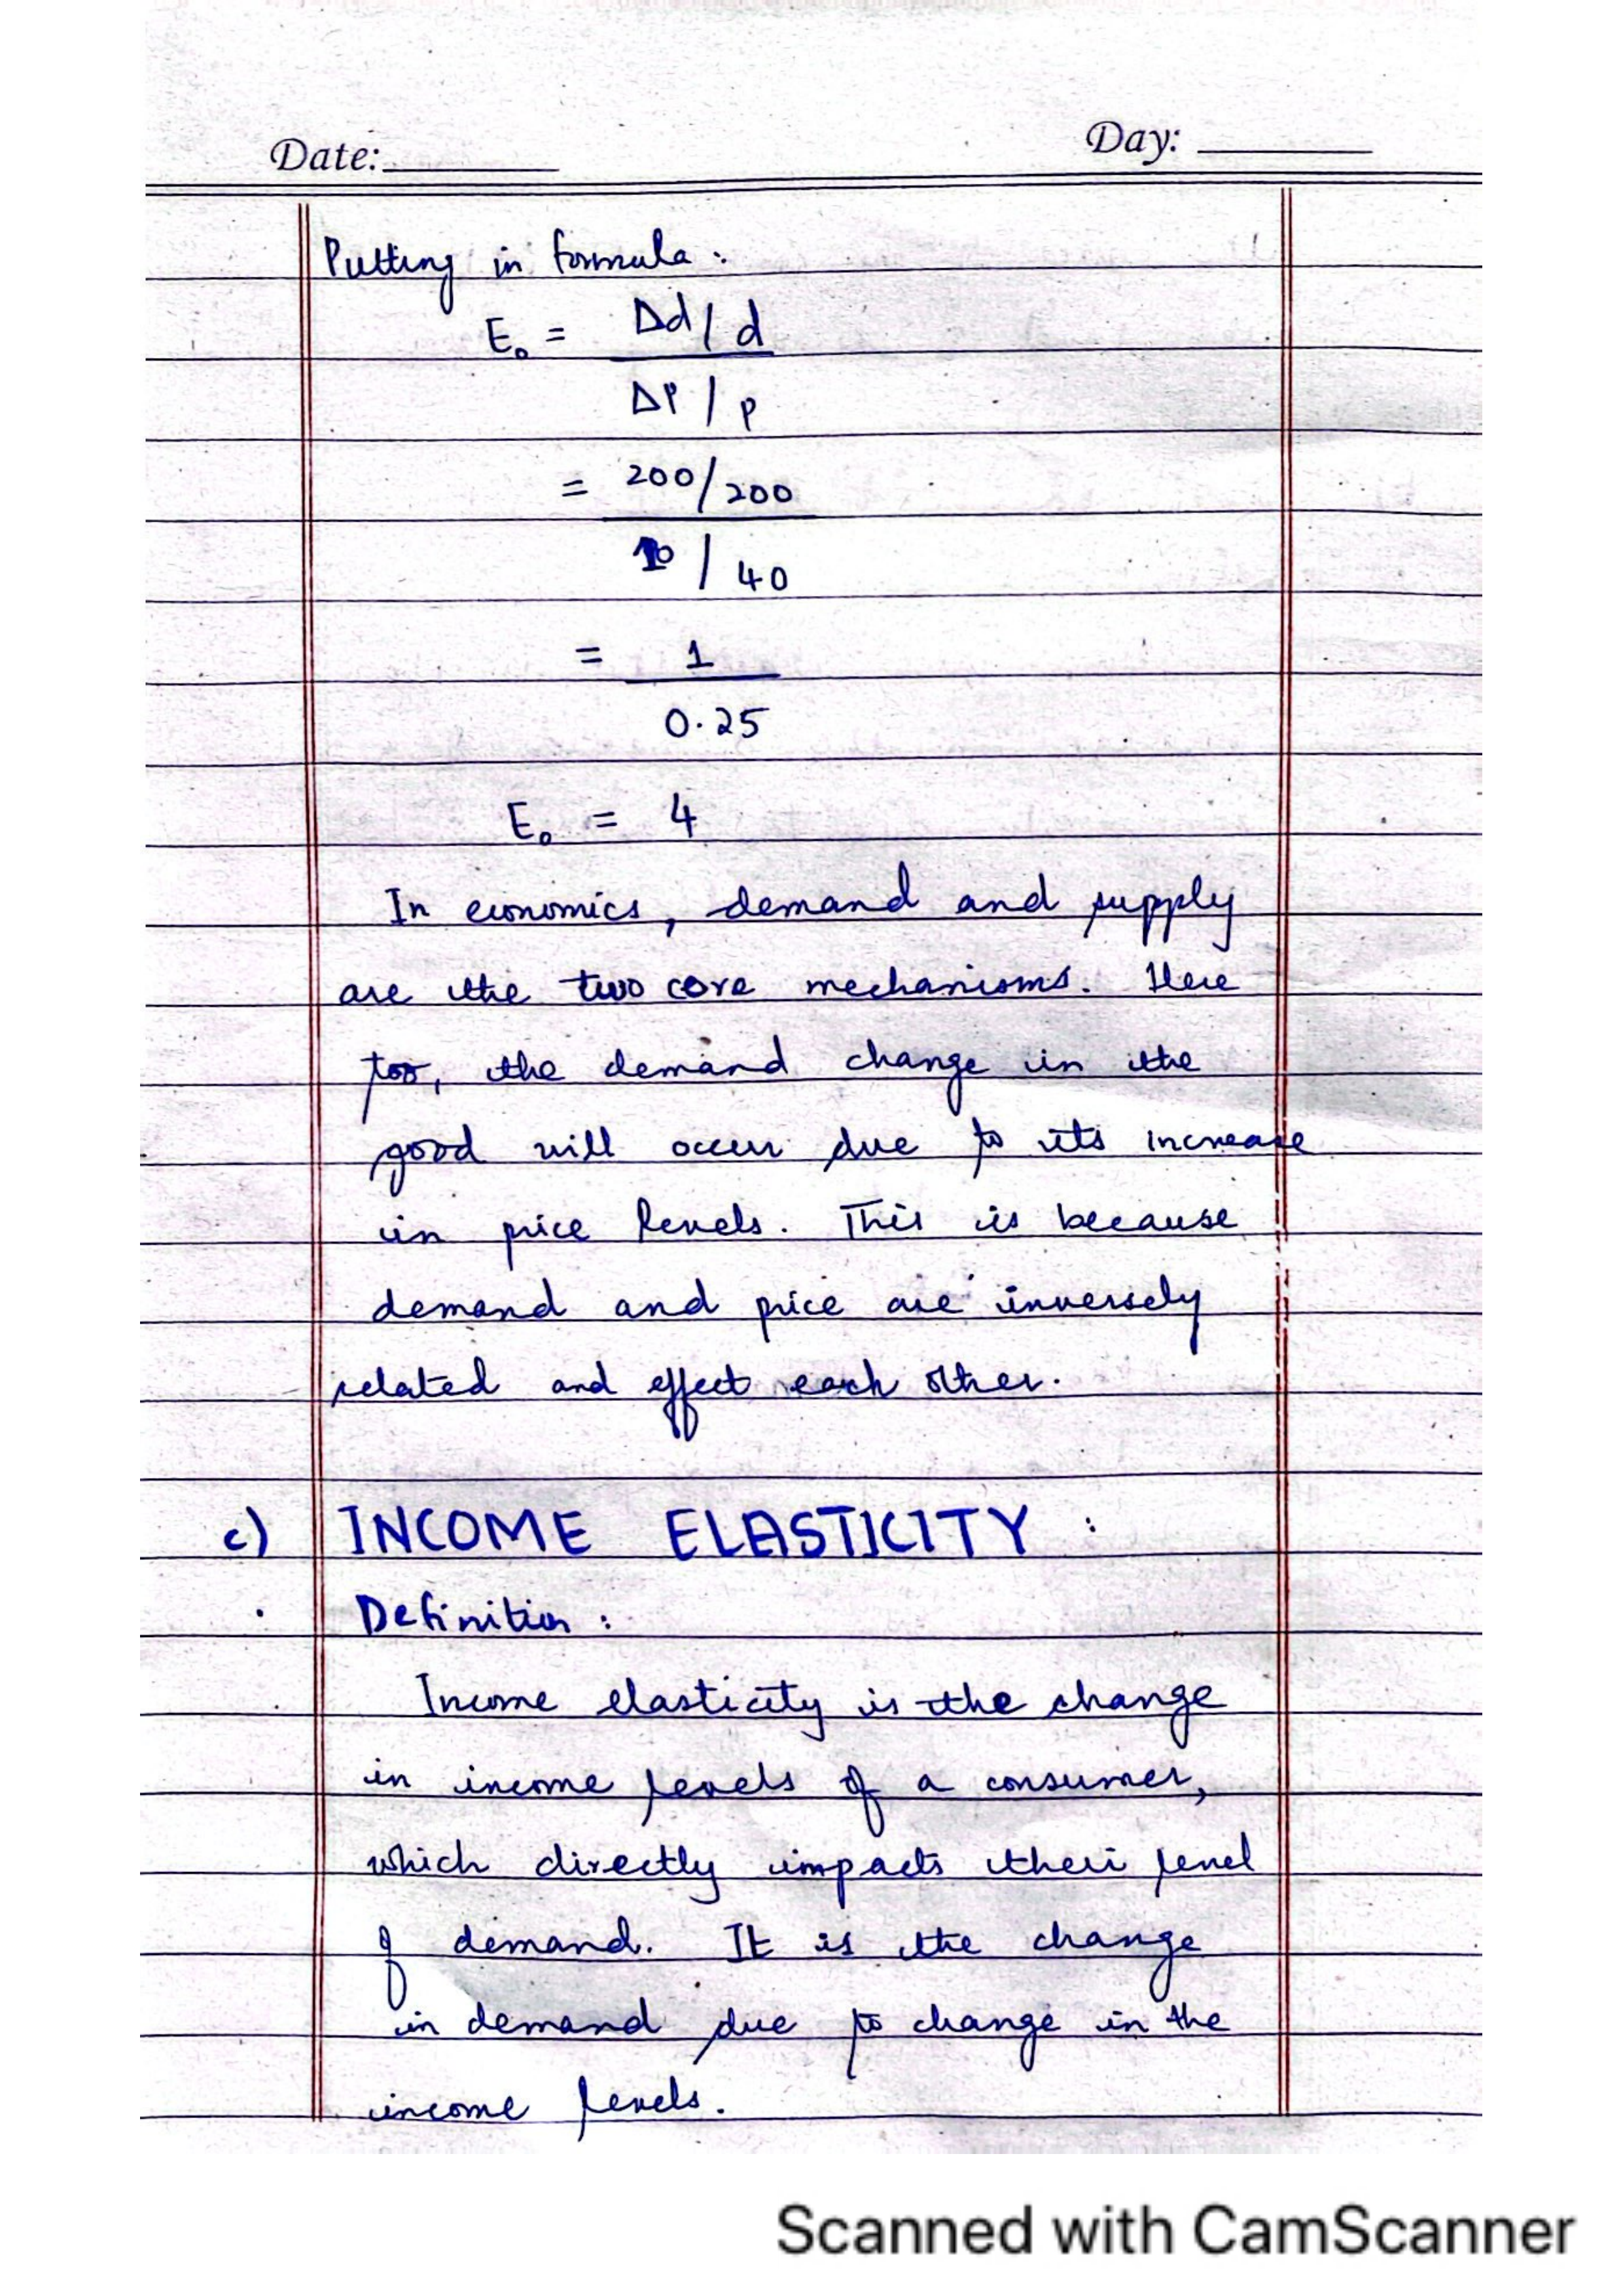 Date:
Day:
Putting in formula :
E₀ = Δd / d
ΔP / P
= 200 / 200
10 / 40
= 1
0.25
E₀ = 4
In economics, demand and supply
are the two core mechanisms. Here
too, the demand change in the
good will occur due to its increase
in price levels. This is because
demand and price are inversely
related and effect each other.
c) INCOME ELASTICITY :
Definition :
Income elasticity is the change
in income levels of a consumer,
which directly impacts their level
of demand. It is the change
in demand due to change in the
income levels.
Scanned with CamScanner